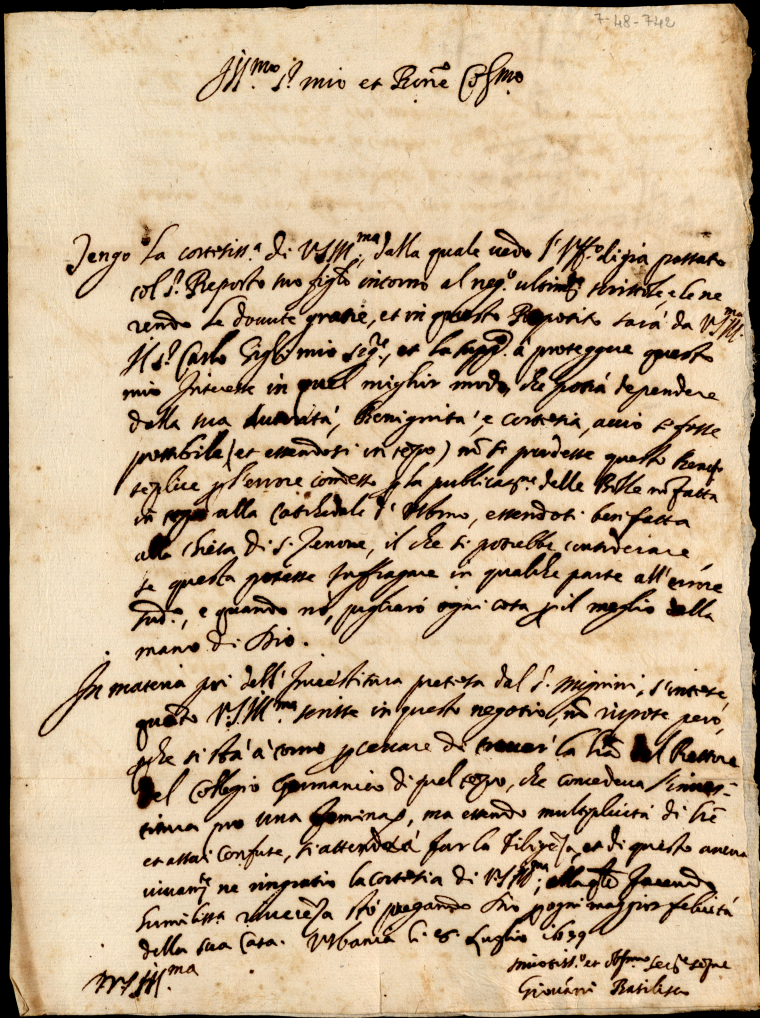 7-48-742
Ill.mo S.r mio et Pron̄e Coss.mo
Tengo la cortesiss.a di V.S.Ill.ma, dalla quale vedo l'Uff.o passato
col S.r suo figlo intorno al neg.o scrittole, e le ne
rendo le dovute gratie, et in questo Proposito sarà da V.S.Ill.ma
Il S.r Carlo mio Sig.re, et la à proteggere questo
mio Interesse in quel miglior modo, che potrà dependere
dalla sua Benignità, e cortesia, acciò se fosse
possibile (et essendosi in tēpo) nō si perdesse questo
seplice p l'errore comesso p la publicat.ne delle Bolle nō fatta
in alla Cathedrale d'Urbino, essendosi ben fatta
alla Chiesa di S. Zenone, il che si potrebbe considerare
se questa potesse suffragare in qualche parte all'errore
sud.o, e quando nò, pigliarò ogni cosa p il meglio della
mano di Dio.
In materia poi dell'Investitura pretesa dal S. Mignini, s'intese
quāto V.S.Ill.ma scrisse in questo negotio, nō rispose però,
pche si stà à torno p cercare di la del Rettore
del Collegio Germanico di quel tēpo, che concedeva l'inves=
titura pro una femina, ma essendo multiplicità di
et assai confuse, si attenderà à far la diligēza, et di questo ancora
vivam.te ne ringratio la cortesia di V.S.Ill.ma; alla q.le facendo
humiliss.a riverēza stò pregando Dio p ogni maggior felicità
della sua Casa. Urbania li 8 Luglio 1699
D V.S.Ill.ma
et Oss.mo Ser.re
Giovāni Basilisco